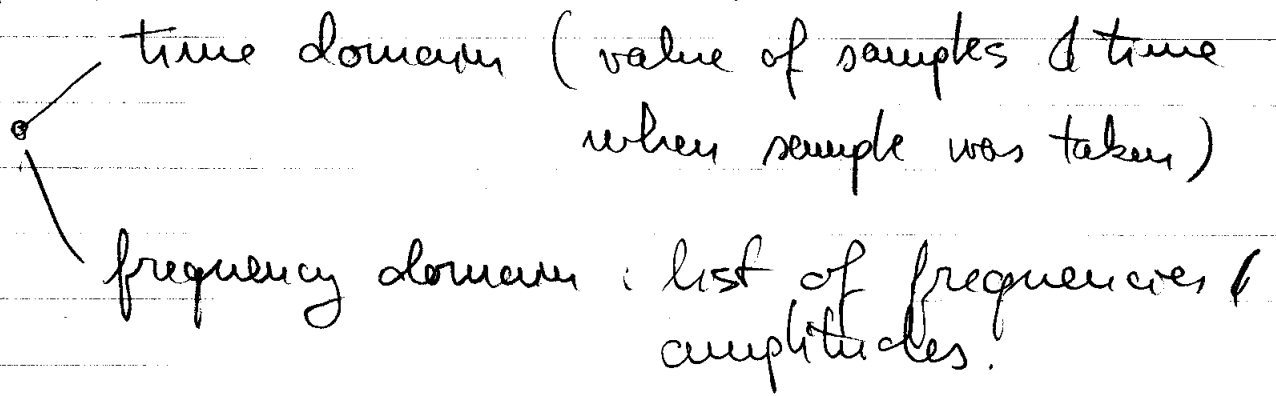 time domain (value of samples & time
when sample was taken)
frequency domain : list of frequencies &
amplitudes.